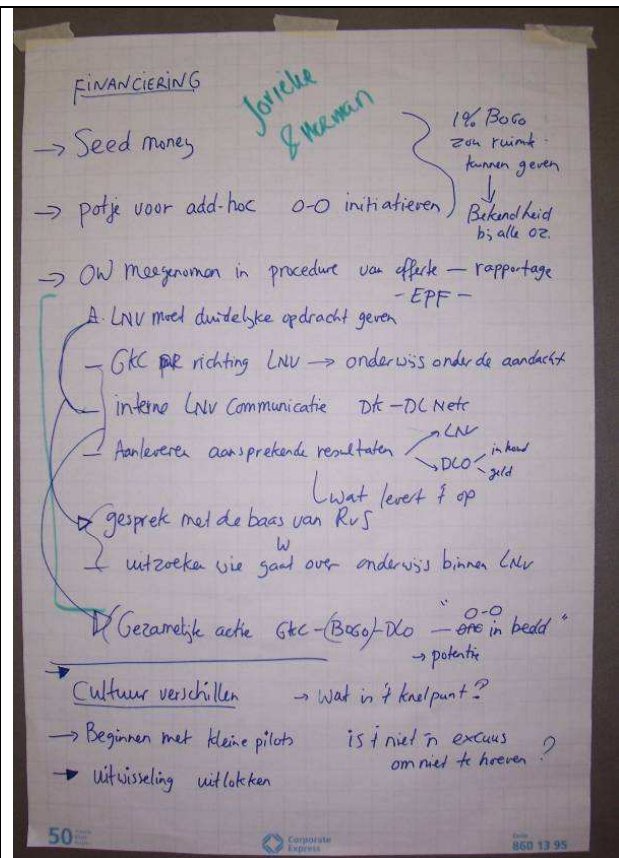 FINANCIERING
Jorieke
& Herman
→ Seed money
1% BOGO
zou ruimte
kunnen geven
↓
Bekendheid
bij alle oz.
→ potje voor add-hoc O-O initiatieven
→ OW meegenomen in procedure van offerte — rapportage
- EPF -
A. LNV moet duidelijke opdracht geven
- GKC richting LNV → onderwijs onder de aandacht
- interne LNV Communicatie DK - DLNetc
- Aanleveren aansprekende resultaten → LNV
→ DLO - inhoud
- geld
wat levert 't op
gesprek met de baas van RvS
W
- uitzoeken wie gaat over onderwijs binnen LNV
Gezamelijke actie GKC-(BOGO)-DLO — " O-O in bedd "
→ potentie
Cultuur verschillen → Wat is 't knelpunt?
→ Beginnen met kleine pilots
is 't niet 'n excuus
om niet te hoeven ?
→ uitwisseling uitlokken
50
Corporate
Express
860 13 95